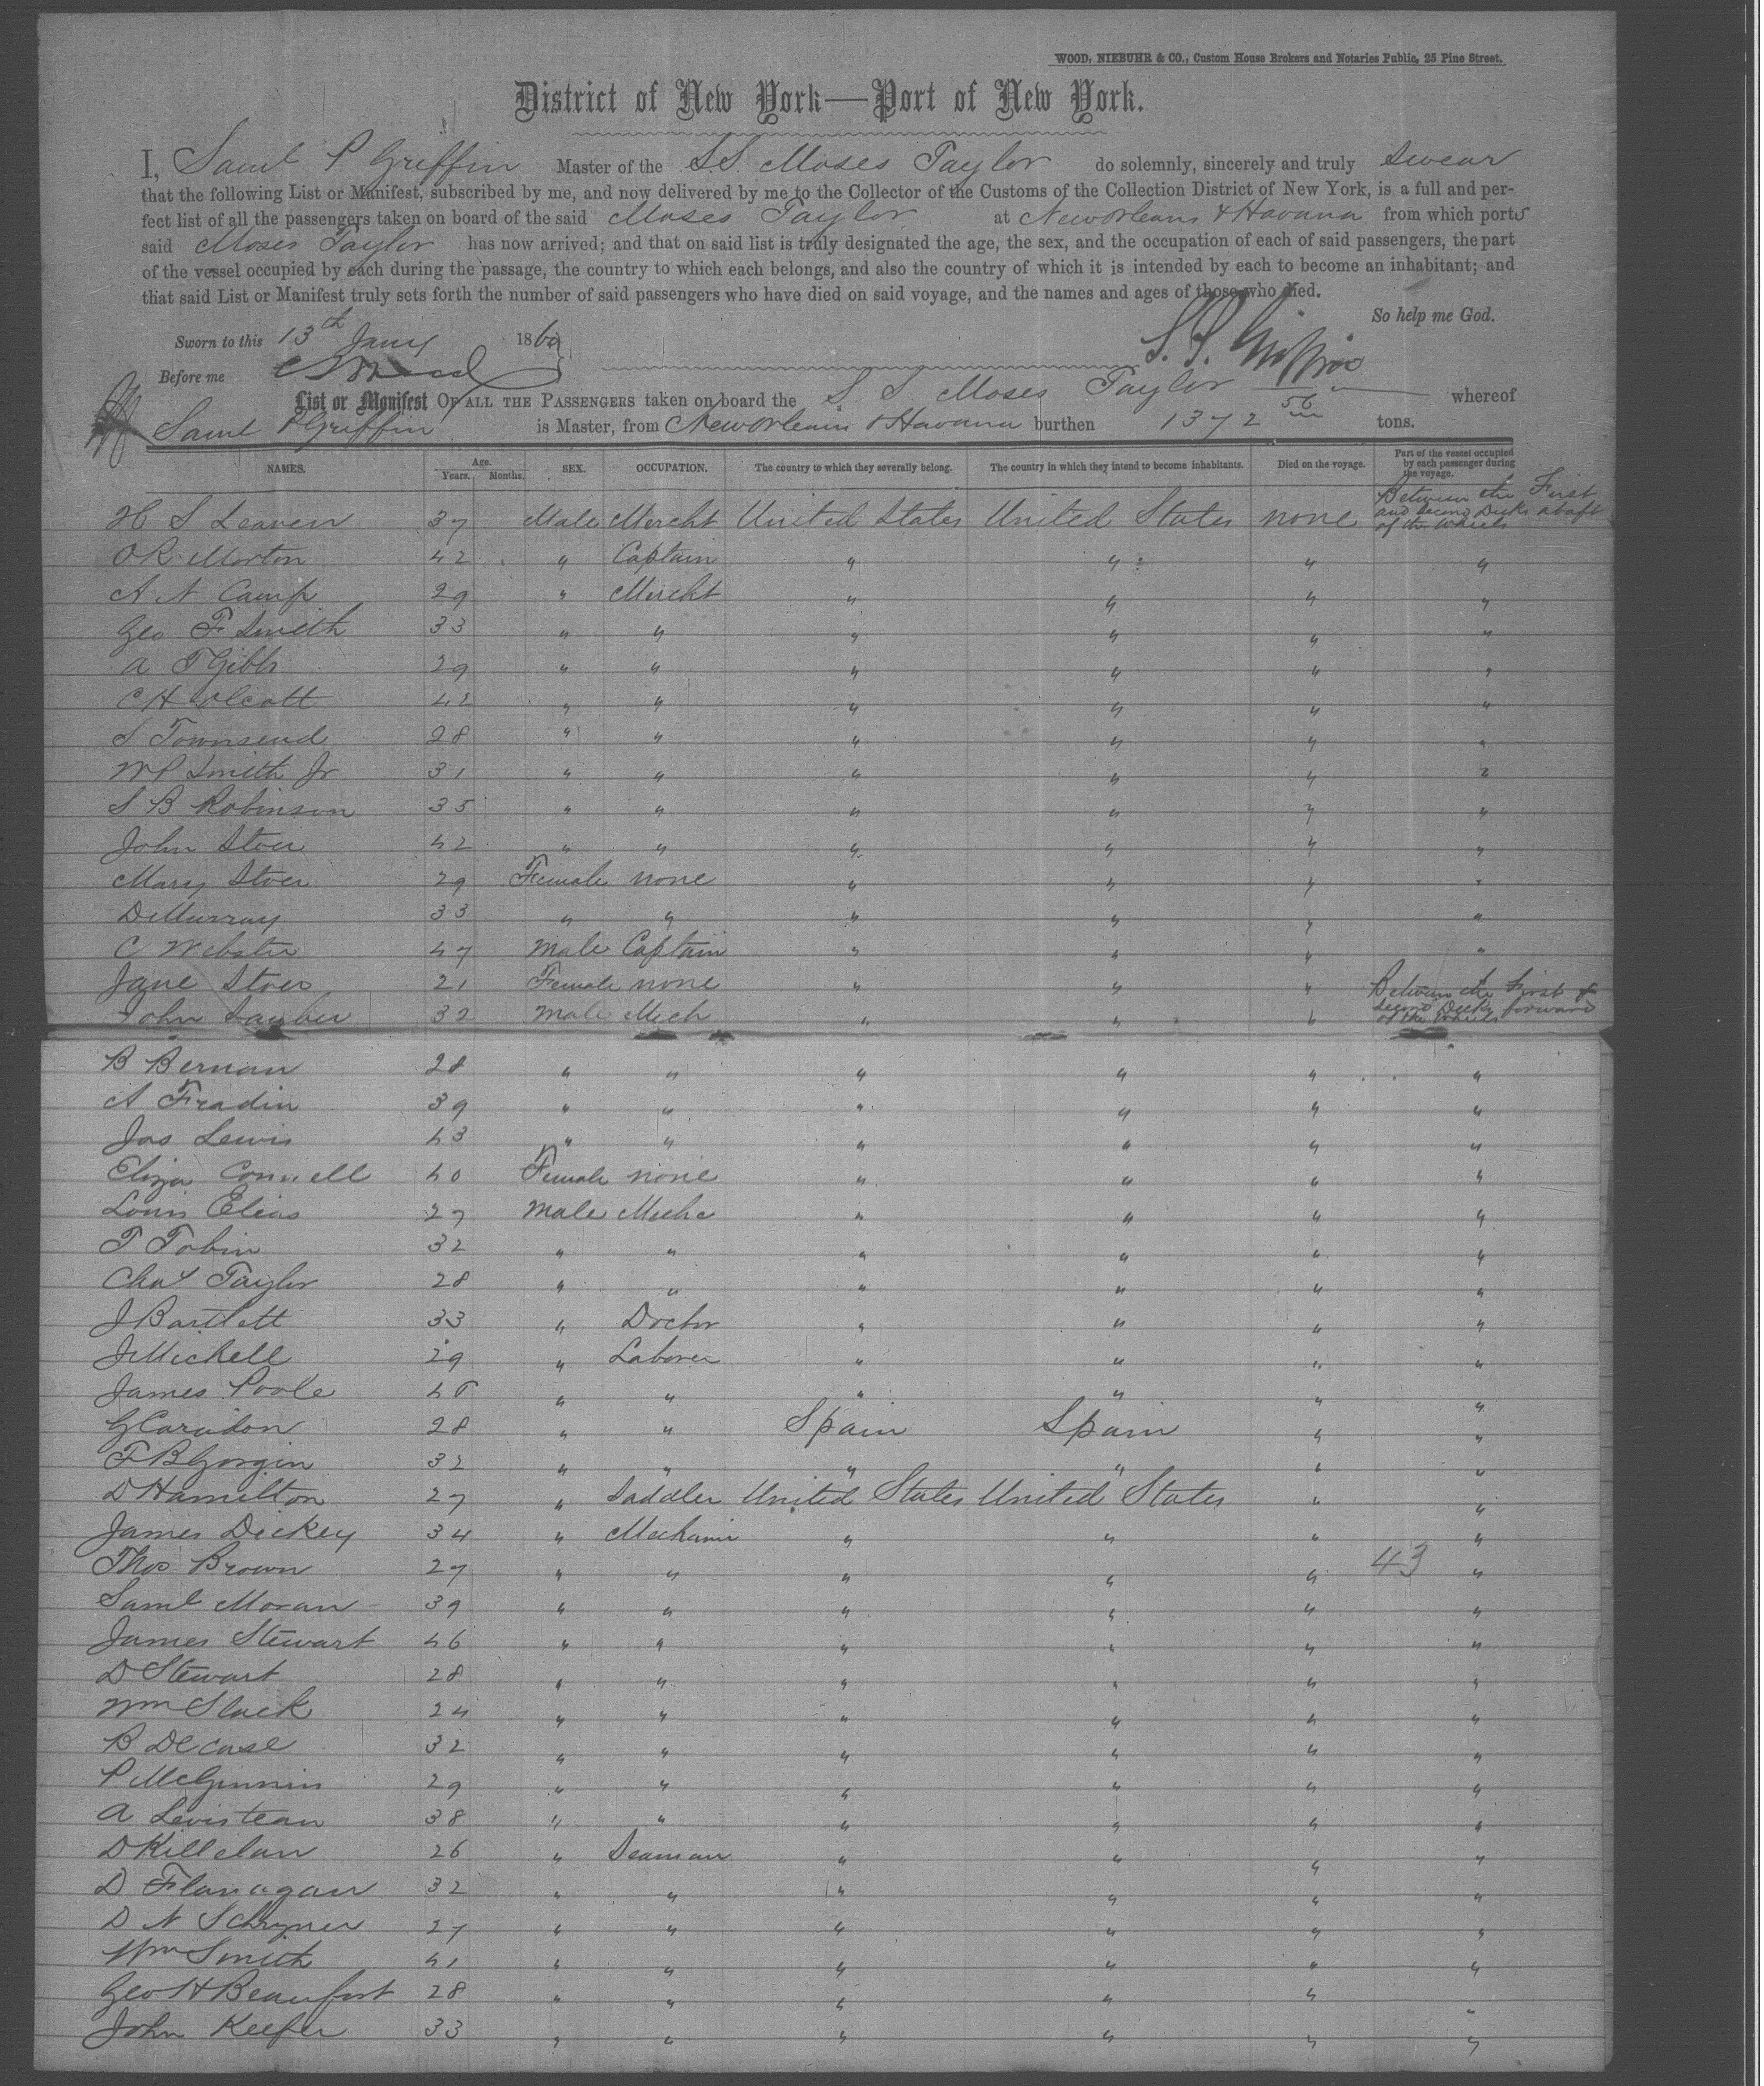 WOOD, NIEBUHR & CO., Custom House Brokers and Notaries Public, 25 Pine Street.
District of New York—Port of New York.
I, Saml P Griffin Master of the S.S. Moses Taylor do solemnly, sincerely and truly swear
that the following List or Manifest, subscribed by me, and now delivered by me to the Collector of the Customs of the Collection District of New York, is a full and per-
fect list of all the passengers taken on board of the said Moses Taylor at New Orleans & Havana from which ports
said Moses Taylor has now arrived; and that on said list is truly designated the age, the sex, and the occupation of each of said passengers, the part
of the vessel occupied by each during the passage, the country to which each belongs, and also the country of which it is intended by each to become an inhabitant; and
that said List or Manifest truly sets forth the number of said passengers who have died on said voyage, and the names and ages of those who died.
So help me God.
Sworn to this 13th Jany 1860 S. P. Griffin
Before me
List or Manifest OF ALL THE PASSENGERS taken on board the S. S. Moses Taylor whereof
Saml P Griffin is Master, from New Orleans & Havana burthen 1372 56 tons.
NAMES. Age. Years. Months. SEX. OCCUPATION. The country to which they severally belong. The country in which they intend to become inhabitants. Died on the voyage. Part of the vessel occupied by each passenger during the voyage.
H S Leaven 37 Male Mercht United States United States none Between the First and Second Decks abaft of the Wheels
O R Morton 42 " Captain " " " "
A N Camp 29 " Mercht " " " "
Geo F Smith 33 " " " " " "
A T Gibbs 29 " " " " " "
C H Olcott 42 " " " " " "
S Townsend 28 " " " " " "
W P Smith Jr 31 " " " " " "
S B Robinson 35 " " " " " "
John Stoer 42 " " " " " "
Mary Stoer 29 Female none " " " "
D Murray 33 " " " " " "
C Webster 47 Male Captain " " " "
Jane Stoer 21 Female none " " "
John Sauber 32 Male Mech " " " Between the First & Second Decks forward of the Wheels
B Bernan 28 " " " " " "
A Fradin 39 " " " " " "
Jas Lewis 43 " " " " " "
Eliza Connell 40 Female none " " " "
Louis Elias 27 Male Mechc " " " "
T Tobin 32 " " " " " "
Chas Taylor 28 " " " " " "
J Bartlett 33 " Doctor " " " "
J Michell 29 " Laborer " " " "
James Poole " " " " " "
G Caridon 28 " " Spain Spain " "
F B Gorgin 32 " " " " " "
D Hamilton 27 " Saddler United States United States " "
James Dickey 34 " Mechanic " " " "
Thos Brown 27 " " " " " 43 "
Saml Moran 39 " " " " " "
James Stewart 46 " " " " " "
D Stewart 28 " " " " " "
Wm Slack 24 " " " " " "
B Decase 32 " " " " " "
P McGinnis 29 " " " " " "
A Levistean 38 " " " " " "
D Killelan 26 " Seaman " " " "
D Flanagan 32 " " " " " "
D N Schryner 27 " " " " " "
Wm Smith 41 " " " " " "
Geo H Beaufort 28 " " " " " "
John Keefer 33 " " " " " "